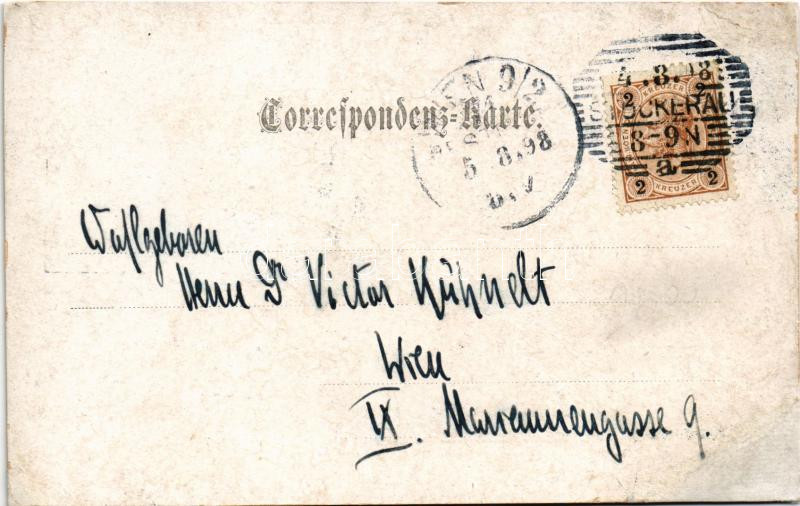 Correspondenz-Karte.
WIEN 9/2
5 8.98
4.8.98
OCKERAU
8-9N
a
2 KREUZER 2
2 KREUZER 2
Wohlgeboren
Herrn Dr Victor Kühnelt
Wien
IX. Mariannengasse 9.